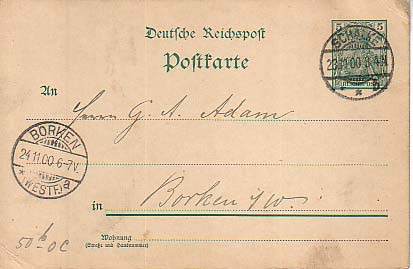 Deutsche Reichspost
Postkarte
5 5
SCHALKE
23.11.00
An
Herrn G. A. Adam
BORKEN
24.11.00.6-7V.
* (WESTF.) a
in Borken i/W.
Wohnung
(Straße und Hausnummer)